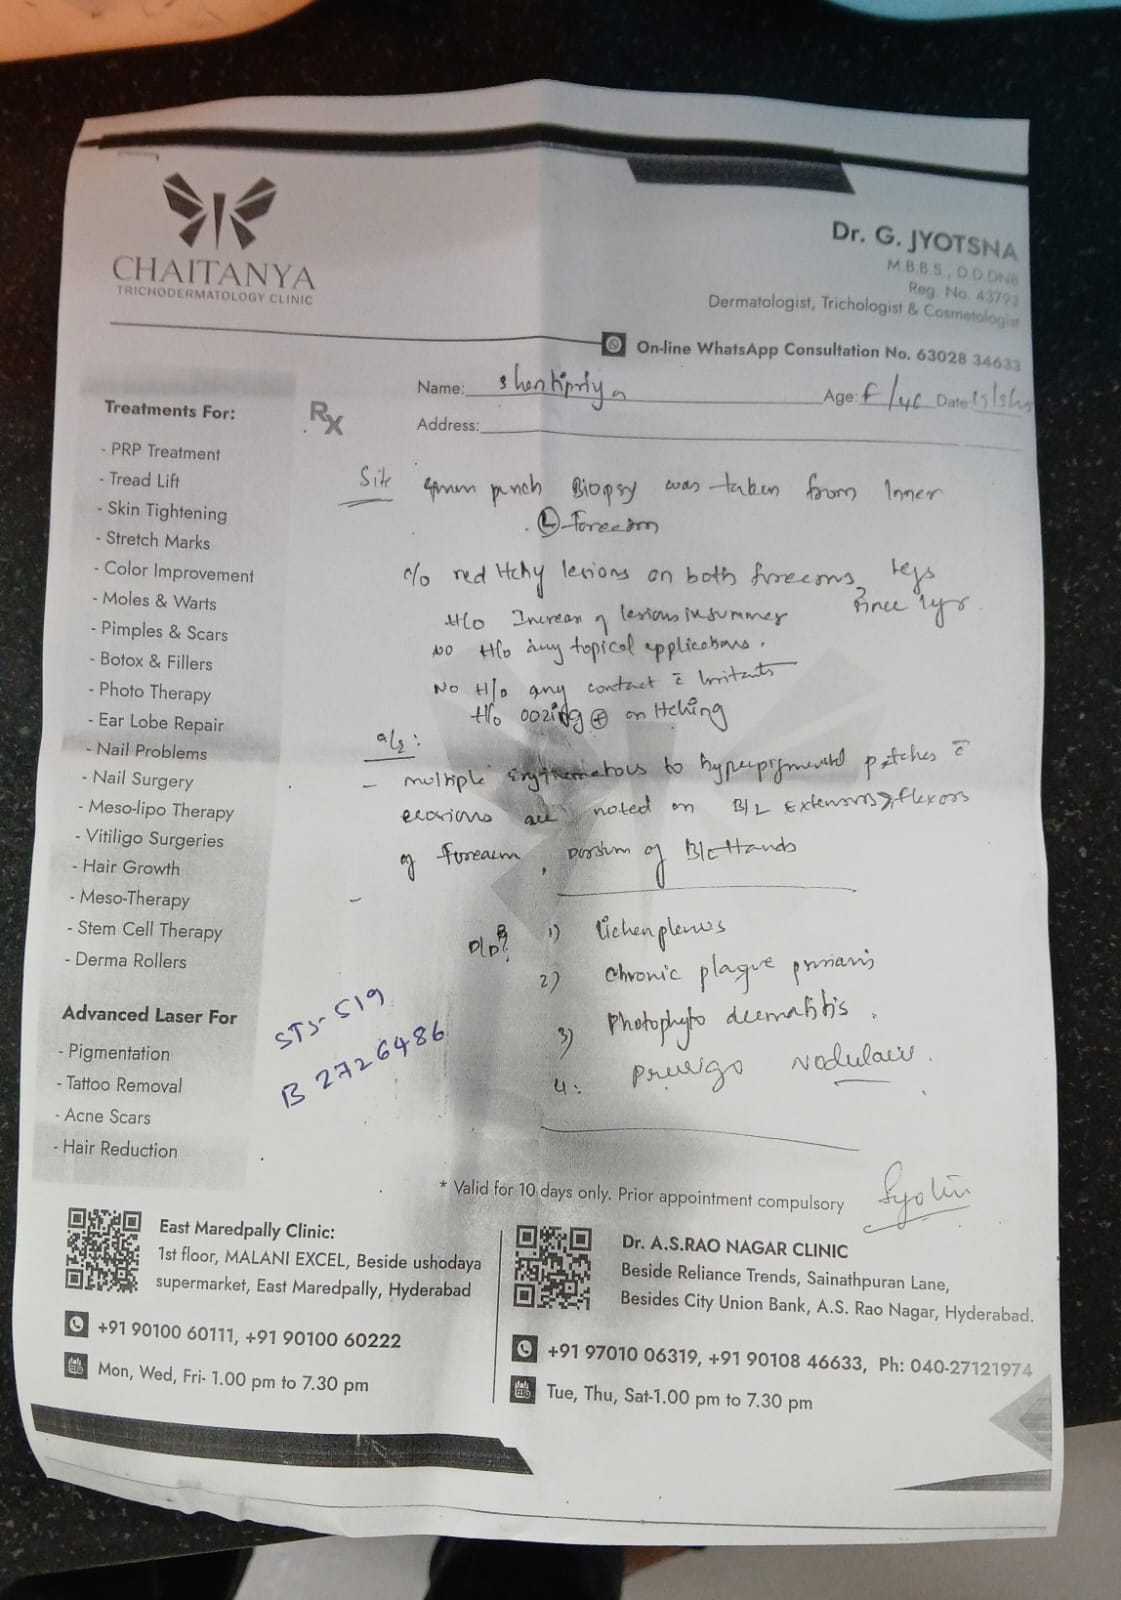 CHAITANYA
TRICHODERMATOLOGY CLINIC
Dr. G. JYOTSNA
M.B.B.S., D.D.DNB
Reg. No. 43793
Dermatologist, Trichologist & Cosmetologist
On-line WhatsApp Consultation No. 63028 34633
Name: Shantipriya
Age: F/46 Date:
Address:
Rx
Treatments For:
- PRP Treatment
- Tread Lift
- Skin Tightening
- Stretch Marks
- Color Improvement
- Moles & Warts
- Pimples & Scars
- Botox & Fillers
- Photo Therapy
- Ear Lobe Repair
- Nail Problems
- Nail Surgery
- Meso-lipo Therapy
- Vitiligo Surgeries
- Hair Growth
- Meso-Therapy
- Stem Cell Therapy
- Derma Rollers
Advanced Laser For
- Pigmentation
- Tattoo Removal
- Acne Scars
- Hair Reduction
Site 4mm punch Biopsy was taken from Inner
(L) Forearm
c/o red Itchy lesions on both forearms, legs
since 1yr.
H/o Increase of lesions in summer
No H/o any topical applications.
No H/o any contact c̄ Irritants
H/o oozing ⊕ on Itching
o/e:
- multiple erythematous to hyperpigmented patches c̄
are noted on B/L Extensors, flexors
of forearm, dorsum of B/L Hands
D/D? 1) Lichen planus
2) Chronic plaque psoriasis
3) Photophyto dermatitis.
4: Prurigo nodularis.
STJ-519
B 2726486
* Valid for 10 days only. Prior appointment compulsory
East Maredpally Clinic:
1st floor, MALANI EXCEL, Beside ushodaya
supermarket, East Maredpally, Hyderabad
+91 90100 60111, +91 90100 60222
Mon, Wed, Fri- 1.00 pm to 7.30 pm
Dr. A.S.RAO NAGAR CLINIC
Beside Reliance Trends, Sainathpuran Lane,
Besides City Union Bank, A.S. Rao Nagar, Hyderabad.
+91 97010 06319, +91 90108 46633, Ph: 040-27121974
Tue, Thu, Sat-1.00 pm to 7.30 pm